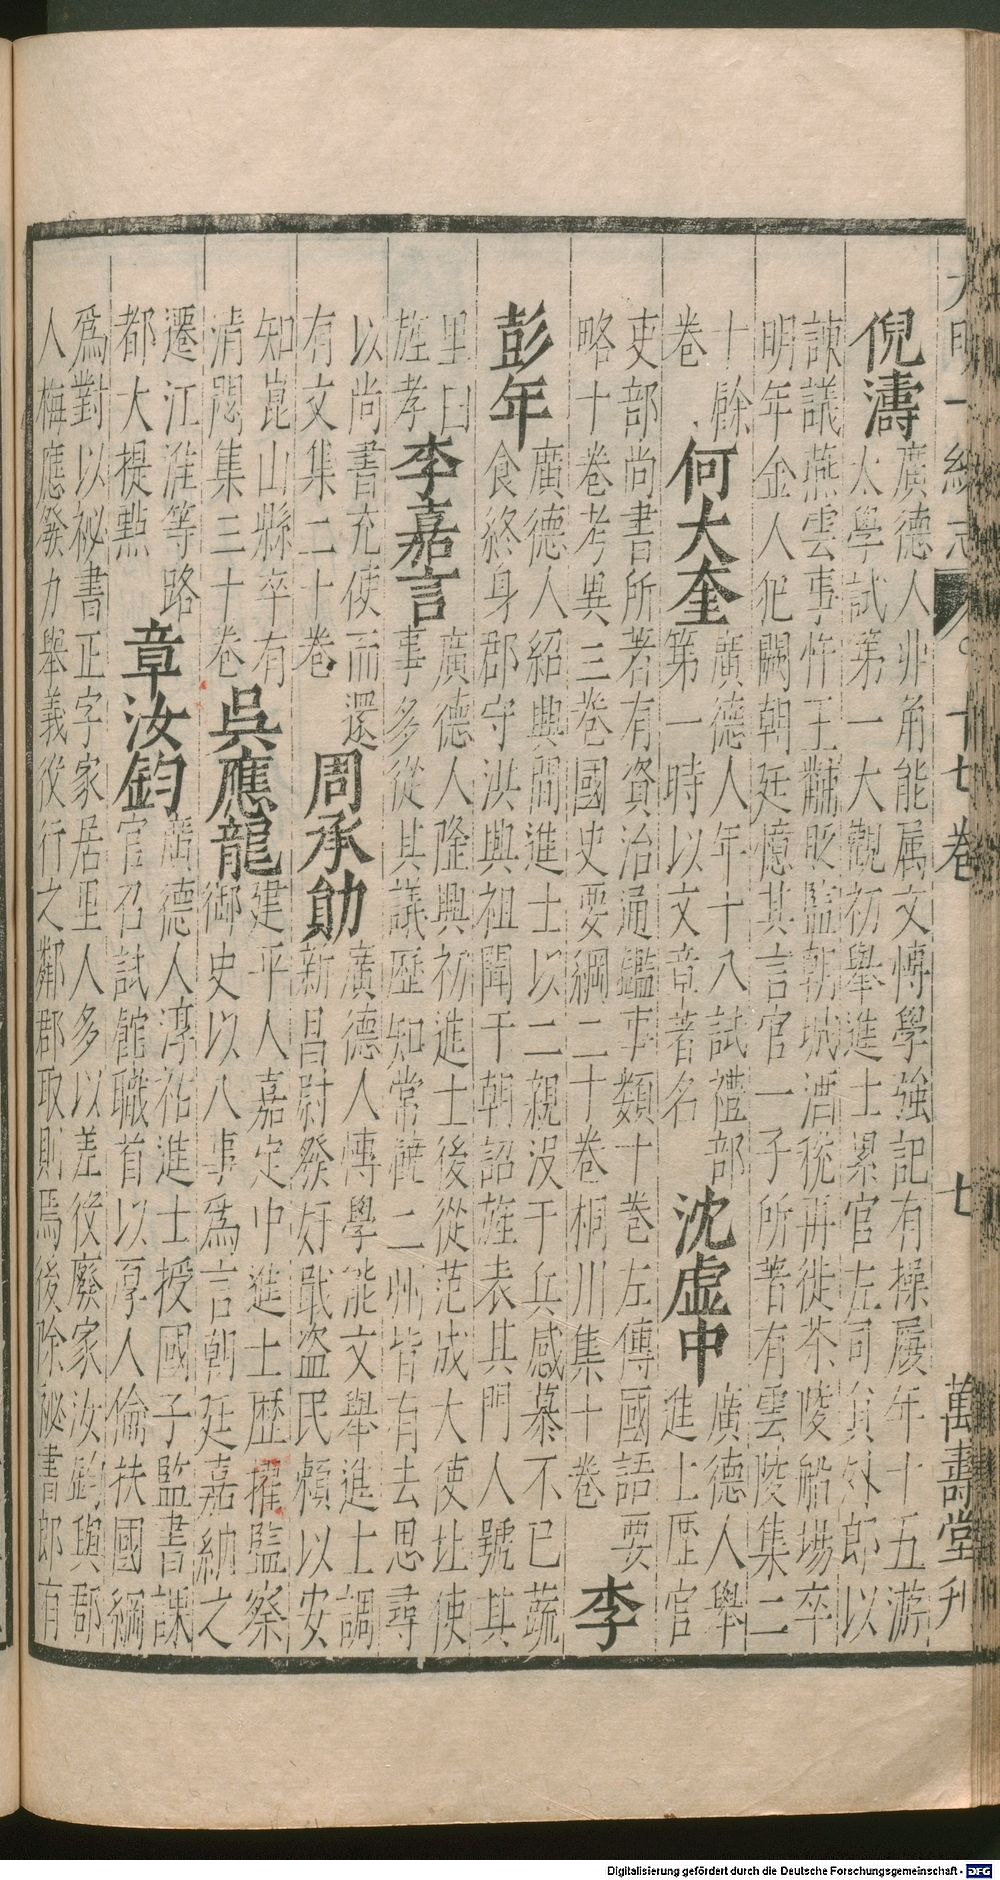 大明一統志 十七卷 七 萬壽堂刋
倪濤
廣德人丱角能属文愽學強記有操屨年十五游
太學試第一大觀初舉進士累官左司貟外郎以
諫議燕雲事忤王黼貶監朝城酒稅再徙茶陵船塲卒
明年金人犯闕朝廷憶其言官一子所著有雲陵集二
十餘
卷
何大奎
廣德人年十八試禮部
第一時以文章著名
沈虚中
廣德人舉
進士歷官
吏部尚書所著有資治通鑑事類十卷左傳國語要
略十卷考異三卷國史要綱二十卷桐川集十卷
李
彭年
廣德人紹興間進士以二親没于兵感慕不已蔬
食終身郡守洪興祖聞于朝詔旌表其門人號其
里曰
旌孝
李嘉言
廣德人隆興初進士後從范成大使北使
事多從其議歷知常德二州皆有去思尋
以尚書充使而還
有文集二十卷
周承勛
廣德人愽學能文舉進士調
新昌尉發奸戢盗民賴以安
知崑山縣卒有
清閟集三十卷
吳應龍
建平人嘉定中進士歷擢監察
御史以八事爲言朝廷嘉納之
遷江淮等路
都大提㸃
章汝鈞
廣德人淳祐進士授國子監書課
官召試館職首以厚人倫扶國綱
爲對以祕書正字家居里人多以差役廢家汝鈞與郡
人梅應發力舉義役行之鄰郡取則焉後除祕書郎有
Digitalisierung gefördert durch die Deutsche Forschungsgemeinschaft - DFG